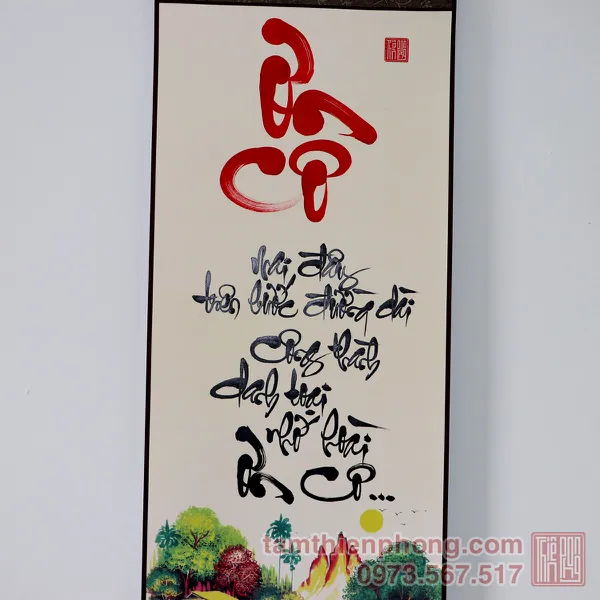 Ơn
Cô
Mai đây
trên bước đường dài
Công thành
danh toại
nhớ hoài
Ơn Cô...
tamthienphong.com
0973.567.517